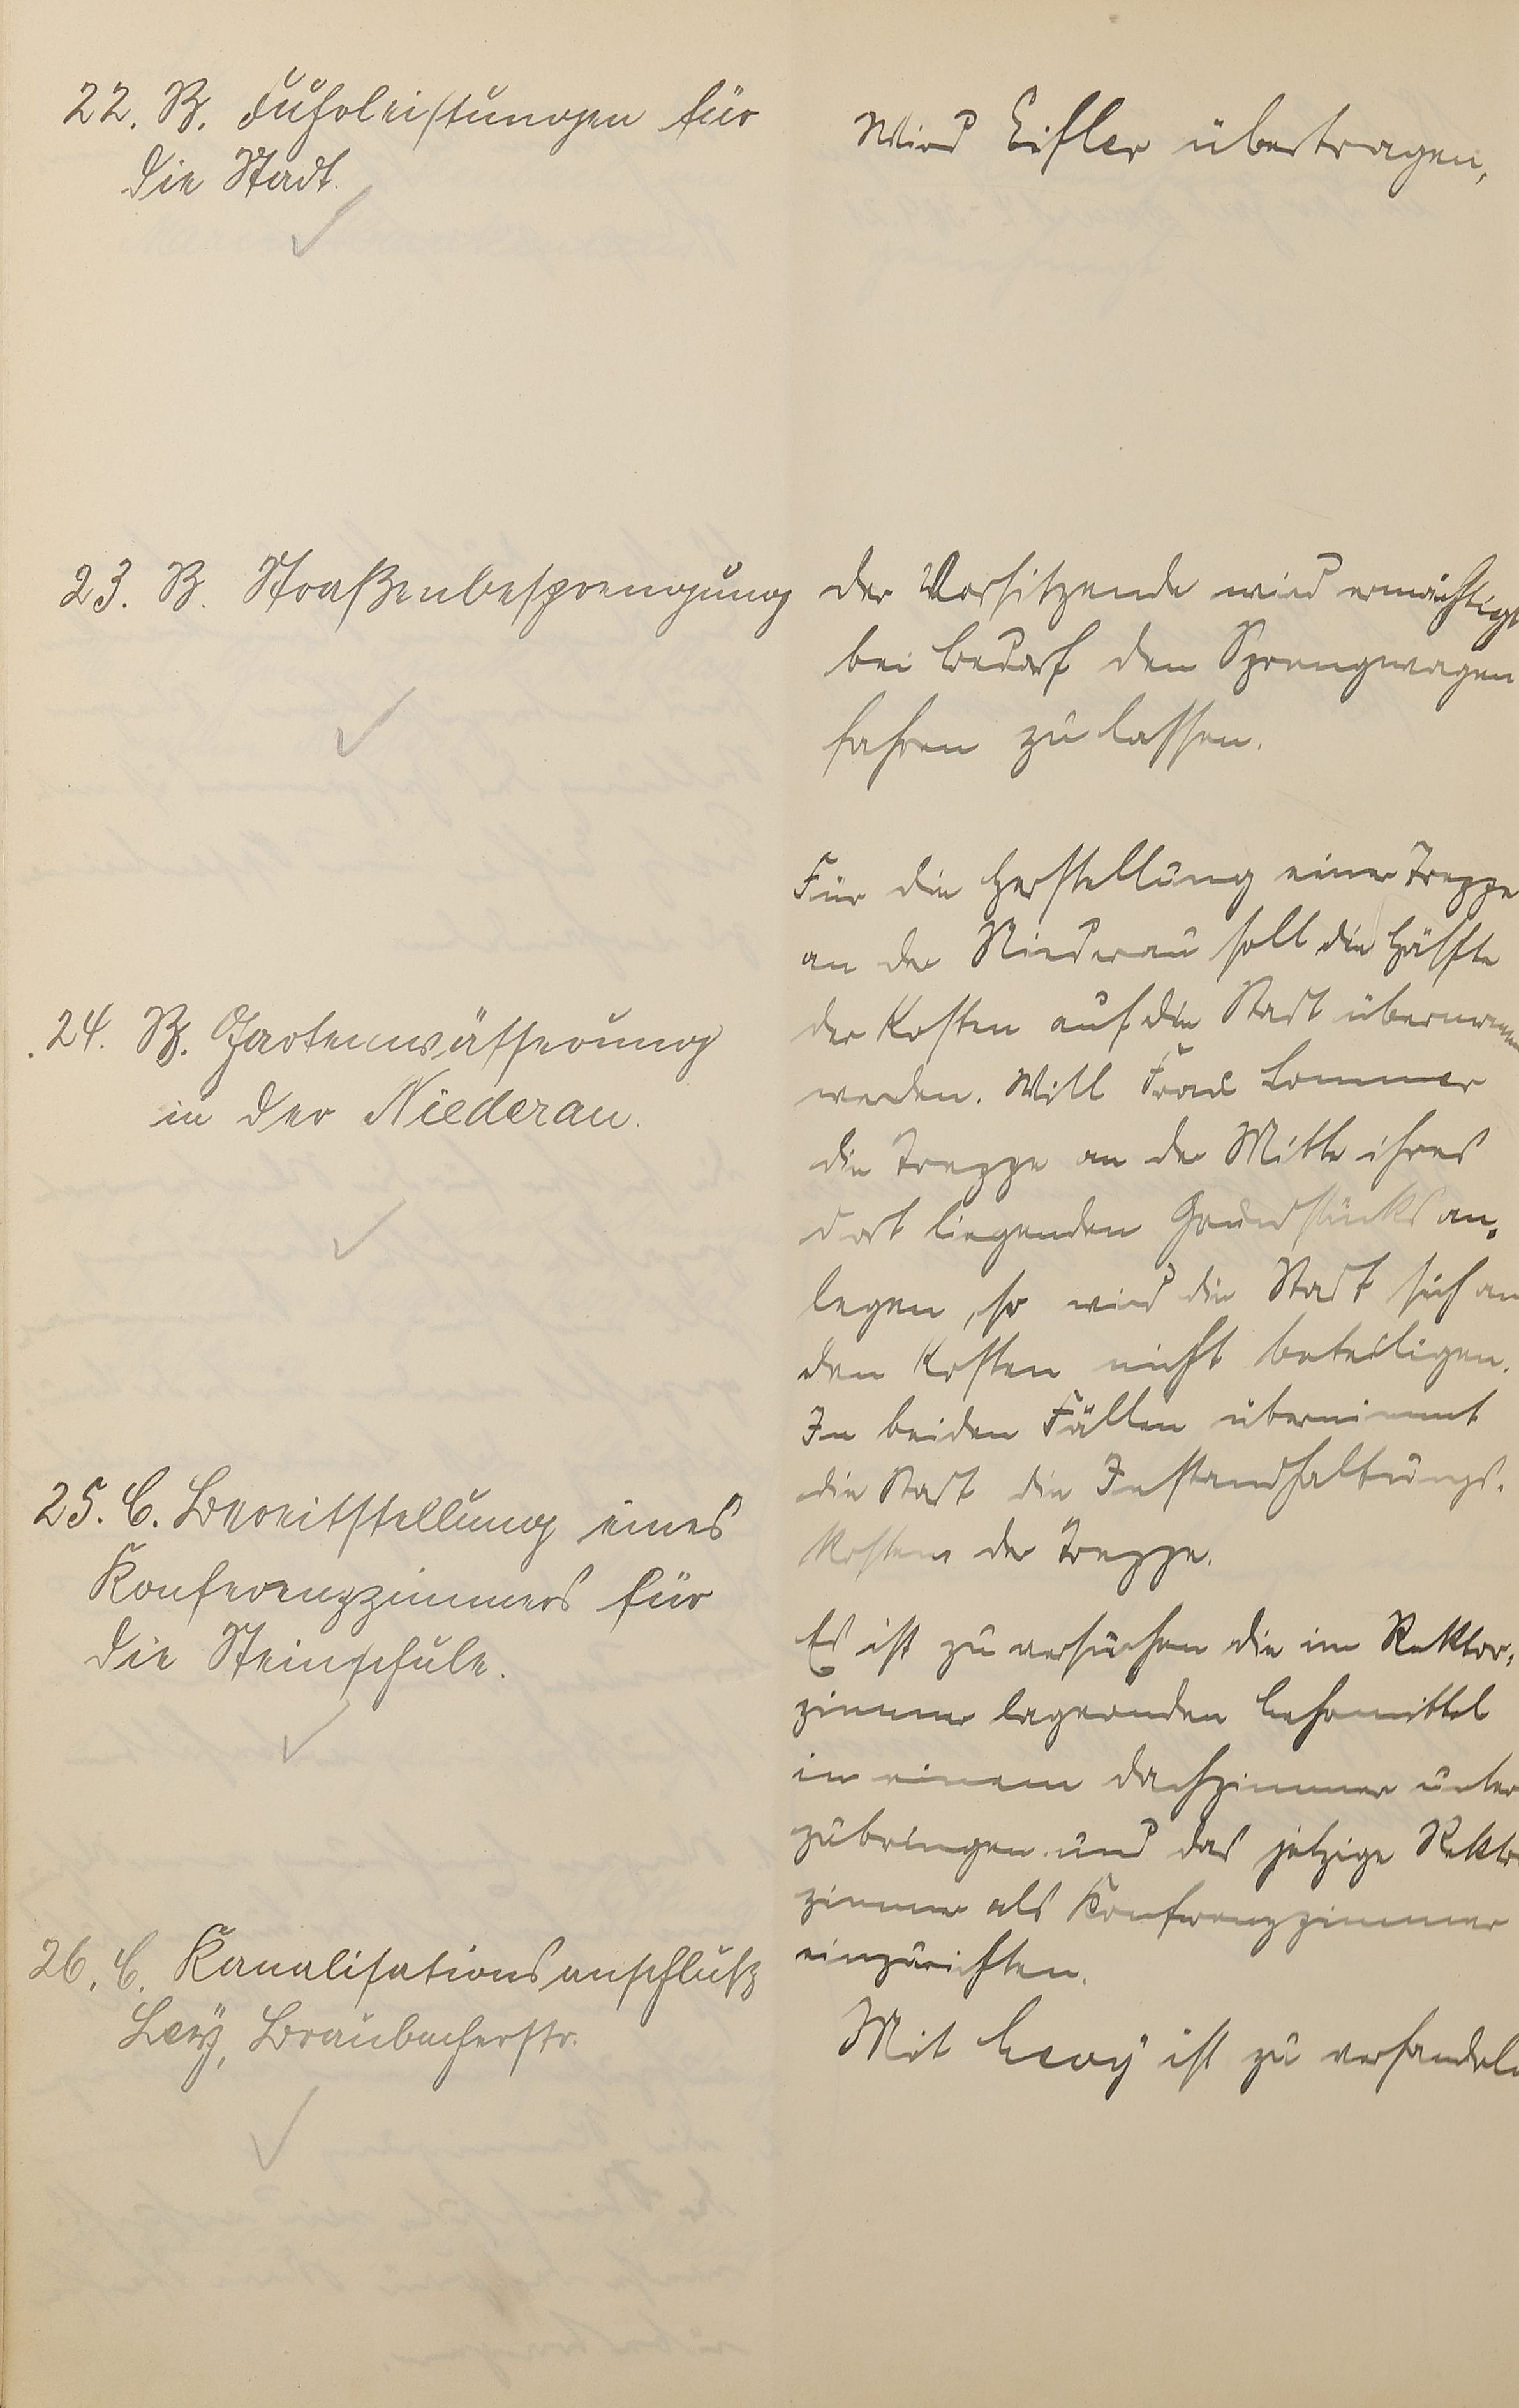 22. B. Fuhrleistungen für
die Stadt.
Wird Eifler übertragen,
23. B. Straßenbesprengung
der Vorsitzende wird ermächtigt
bei Bedarf den Sprengwagen
fahren zu lassen.
24. B. Gartenwässerung
in der Niederau.
Für die Herstellung einer Treppe
an der Niederau soll die Hälfte
der Kosten auf die Stadt übernommen
werden. Will Frau Lommer
die Treppe an der Mitte ihres
dort liegenden Grundstücks an-
legen, so wird die Stadt sich an
den Kosten nicht beteiligen.
In beiden Fällen übernimmt
die Stadt die Instandhaltungs-
kosten der Treppe.
25. C. Bereitstellung eines
Konferenzzimmers für
die Steinschule.
Es ist zu versuchen die im Rektor-
zimmer lagernden Lehrmittel
in einem Dachzimmer unter
zubringen und das jetzige Rektor
zimmer als Konferenzzimmer
einzurichten.
26. C. Kanalisationsanschluß
Levy, Braubacherstr.
Mit Levy ist zu verhandeln